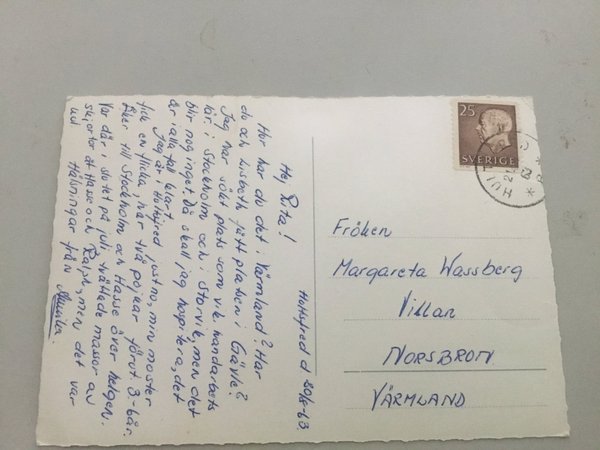 Hultsfred d 20/8-63
Hej Rita!
Hur har du det i Värmland? Har
du och Lisbeth fått platsen i Gävle?
Jag har sökt plats som vik. handarbets
lär. i Stockholm och i Storvik, men det
blir nog inget. Då skall jag hospitera, det
är i alla fall klart.
Jag är i Hultsfred just nu, min moster
fick en flicka, har två pojkar förut 3-5år.
Åker till Stockholm och Hasse över helgen.
Var där i slutet på juli, tvättade massor av
skjortor åt Hasse och Ralph, men det var
kul Hälsningar från Annika.
25
SVERIGE
Fröken
Margareta Wassberg
Villan
NORSBRON
VÄRMLAND